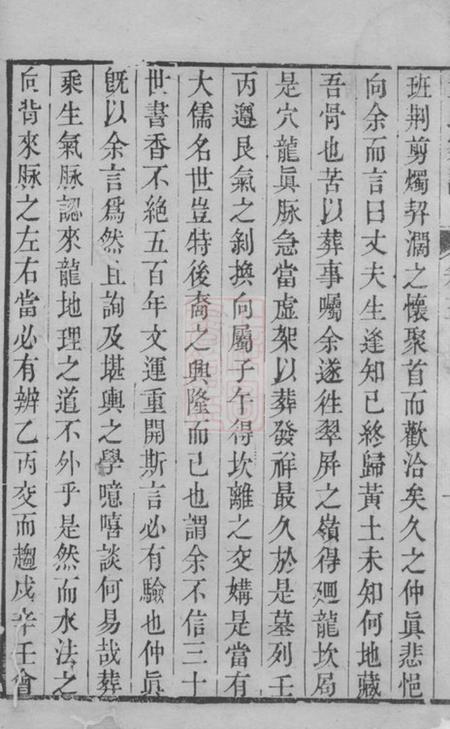 班荆剪燭契濶之懷聚首而歡洽矣久之仲眞悲悒
向余而言曰丈夫生逢知已終歸黃土未知何地藏
吾骨也苦以葬事囑余遂徃翠屏之嶺得廻龍坎局
是穴龍眞脉急當虛架以葬發祥最久於是墓列壬
丙遵艮氣之剝換向屬子午得坎離之交媾是當有
大儒名世豈特後裔之興隆而已也謂余不信三十
世書香不絶五百年文運重開斯言必有驗也仲眞
旣以余言爲然且詢及堪輿之學噫嘻談何易哉葬
乘生氣脉認來龍地理之道不外乎是然而水法之
向背來脉之左右當必有辨乙丙交而趨戌辛壬會